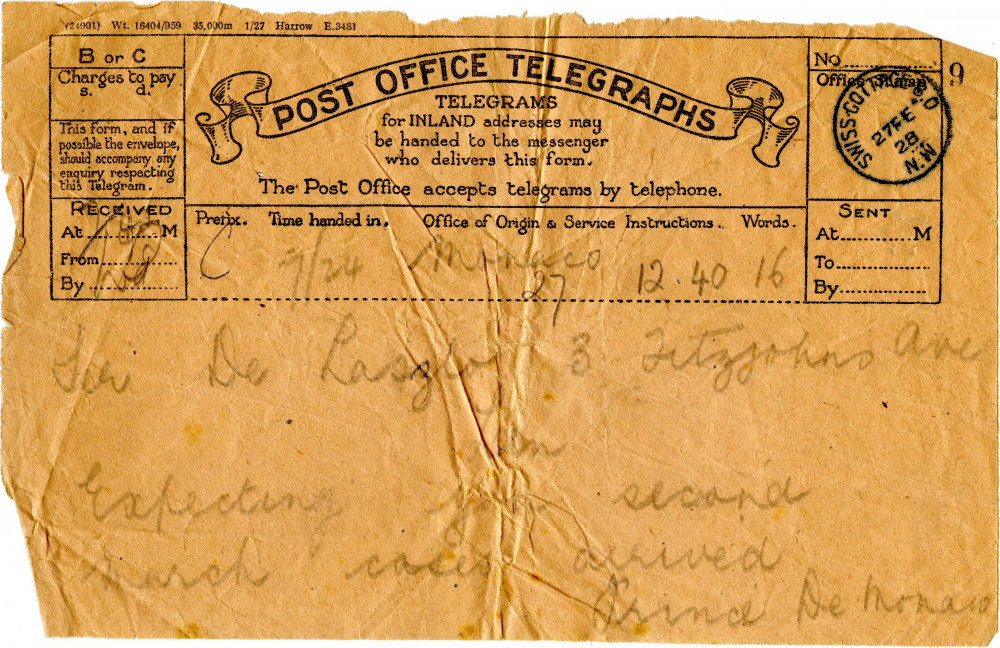 (24901) Wt. 16404/959 35,000m 1/27 Harrow E.3481
B or C
Charges to pay
s. d.
This form, and if
possible the envelope,
should accompany any
enquiry respecting
this Telegram.
RECEIVED
At M
From
By
POST OFFICE TELEGRAPHS
TELEGRAMS
for INLAND addresses may
be handed to the messenger
who delivers this form.
The Post Office accepts telegrams by telephone.
Prefix. Time handed in. Office of Origin & Service Instructions. Words.
C Monaco
27 12.40 16
No 9
Office Stamp
SWISS-COTTAGE B.O
27 FE
28
N.W
SENT
At M
To
By
Sir De Laszlo 3 Fitzjohns Ave
Ldn
Expecting you second
March cases arrived
Prince De Monaco